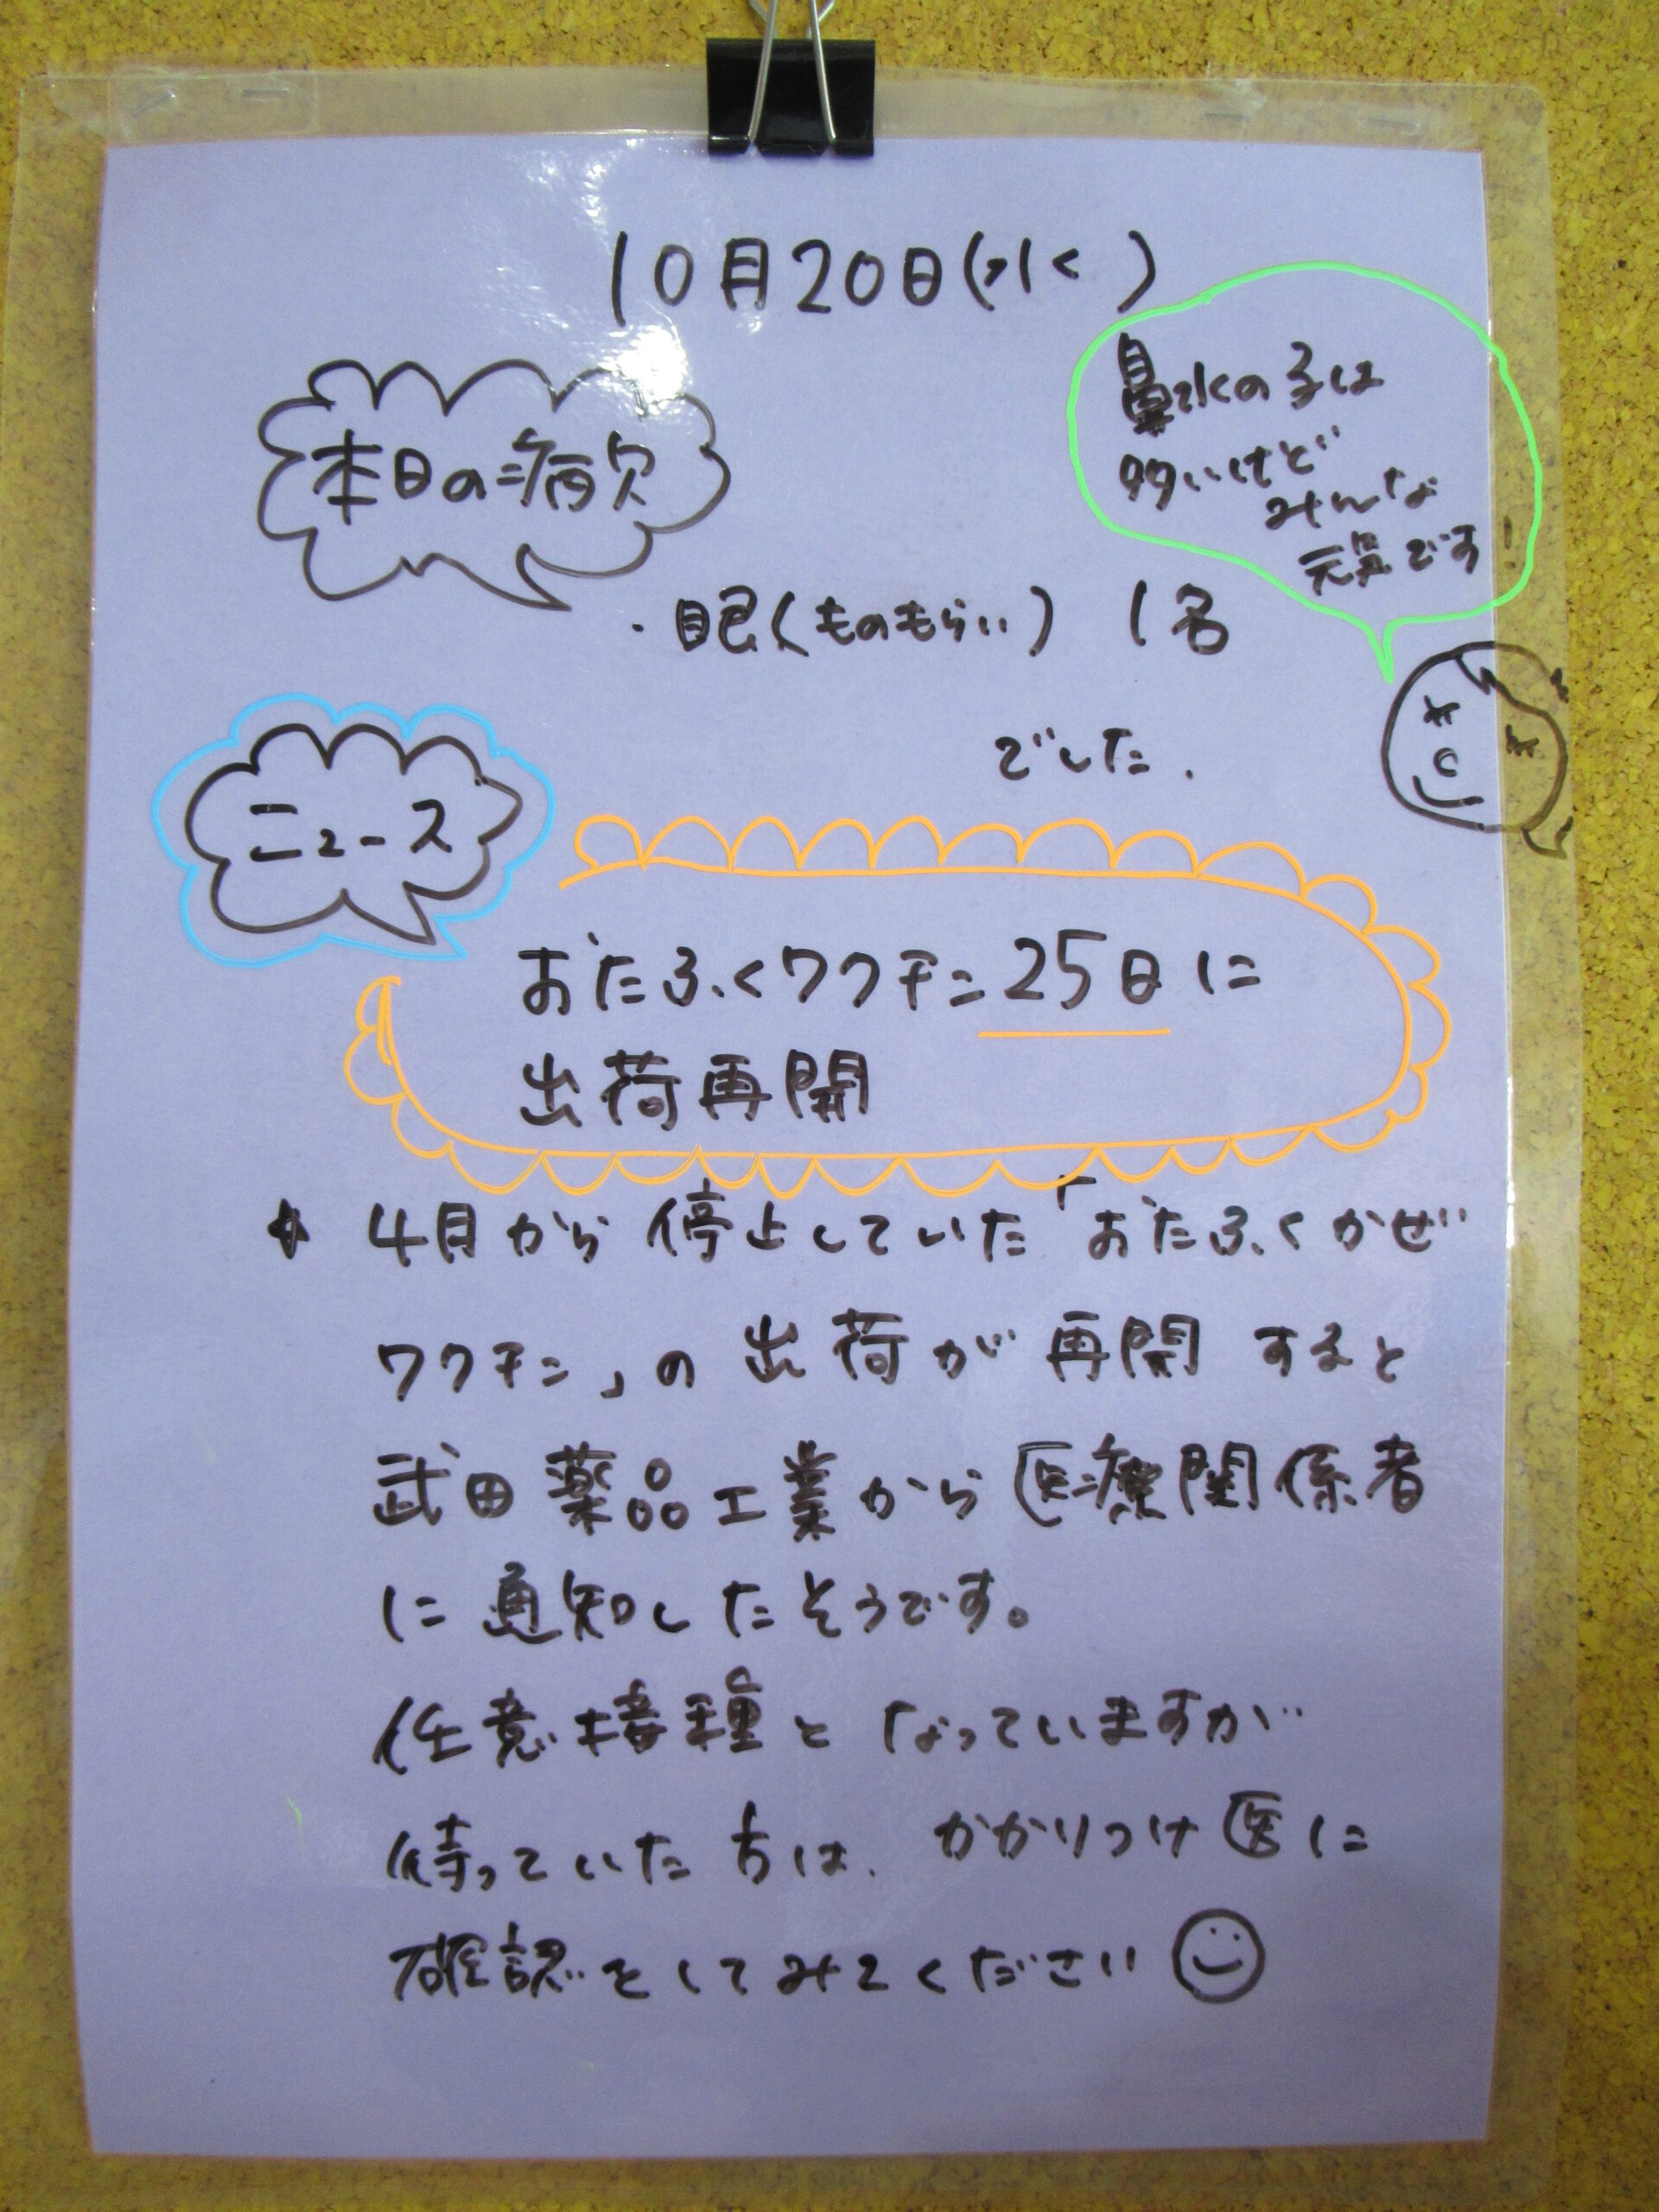 10月20日(水)
鼻水の子は
多いけど
みんな
元気です!
本日の病欠
・眼(ものもらい) 1名
でした.
ニュース
おたふくワクチン25日に
出荷再開
4月から停止していた「おたふくかぜ
ワクチン」の出荷が再開すると
武田薬品工業から医療関係者
に通知したそうです。
任意接種となっていますが
待っていた方は、かかりつけ医に
確認をしてみてください